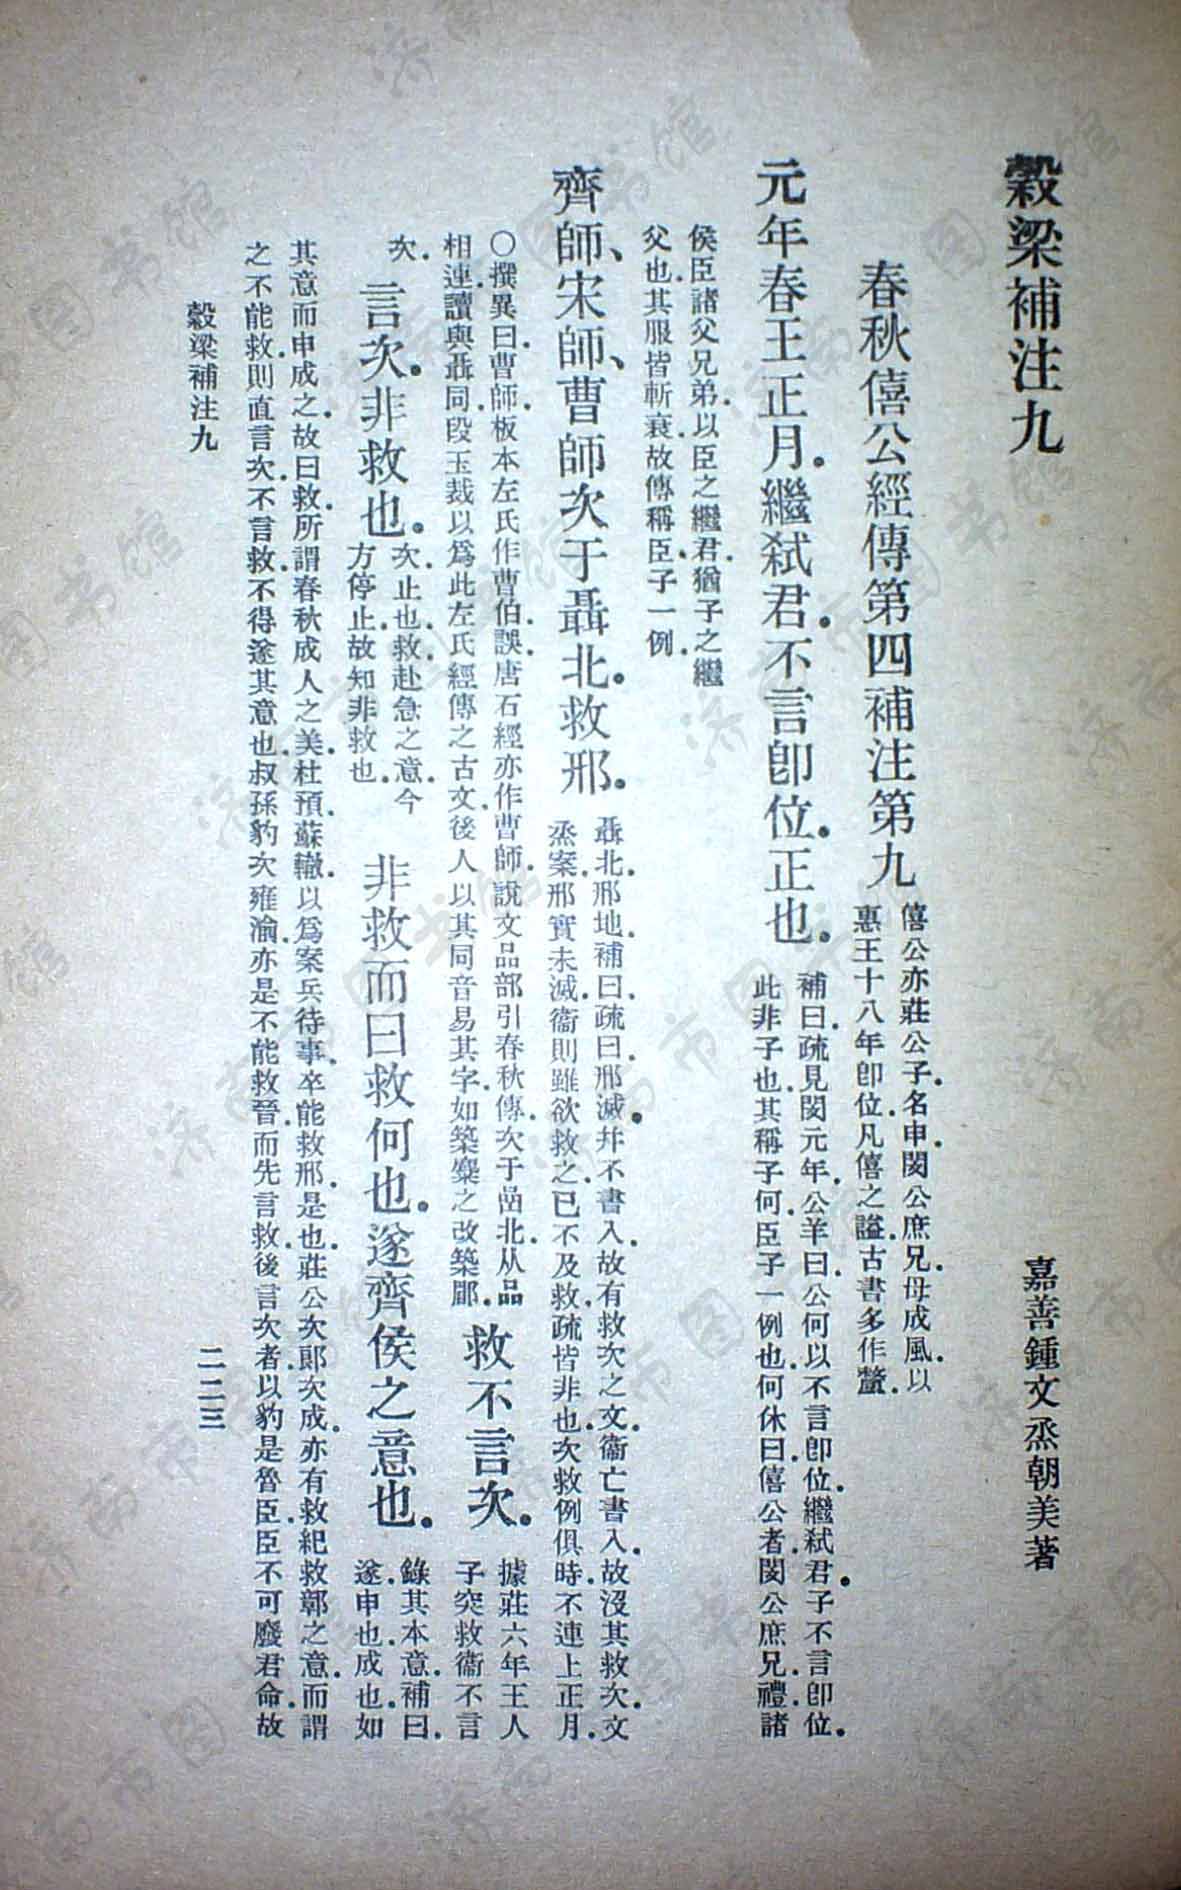 穀梁補注九
嘉善鍾文烝朝美著
春秋僖公經傳第四補注第九
僖公亦莊公子.名申.閔公庶兄.母成風.以
惠王十八年卽位.凡僖之謚.古書多作釐.
元年春王正月.繼弒君.不言卽位.正也.
補曰.疏見閔元年.公羊曰.公何以不言卽位.繼弒君子不言卽位.
此非子也.其稱子何.臣子一例也.何休曰.僖公者.閔公庶兄.禮.諸
侯臣諸父兄弟.以臣之繼君.猶子之繼
父也.其服皆斬衰.故傳稱臣子一例.
齊師、宋師、曹師次于聶北.救邢.
聶北.邢地.補曰.疏曰.邢滅幷不書入.故有救次之文.衞亡書入.故沒其救次.文
烝案.邢實未滅.衞則雖欲救之.已不及救.疏皆非也.次救例俱時.不連上正月.
○撰異曰.曹師.板本左氏作曹伯.誤.唐石經亦作曹師.說文品部引春秋傳.次于嵒北.从品
相連.讀與聶同.段玉裁以爲此左氏經傳之古文.後人以其同音易其字.如築麋之改築郿.
救不言次.
據莊六年王人
子突救衞不言
次.
言次.非救也.
次.止也.救.赴急之意.今
方停止.故知非救也.
非救而曰救何也.遂齊侯之意也.
錄其本意.補曰.
遂.申也.成也.如
其意而申成之.故曰救.所謂春秋成人之美.杜預.蘇轍.以爲案兵待事.卒能救邢.是也.莊公次郎.次成.亦有救紀救鄣之意.而謂
之不能救.則直言次.不言救.不得遂其意也.叔孫豹次雍渝.亦是不能救晉.而先言救.後言次者.以豹是魯臣.臣不可廢君命.故
穀梁補注九
二二三